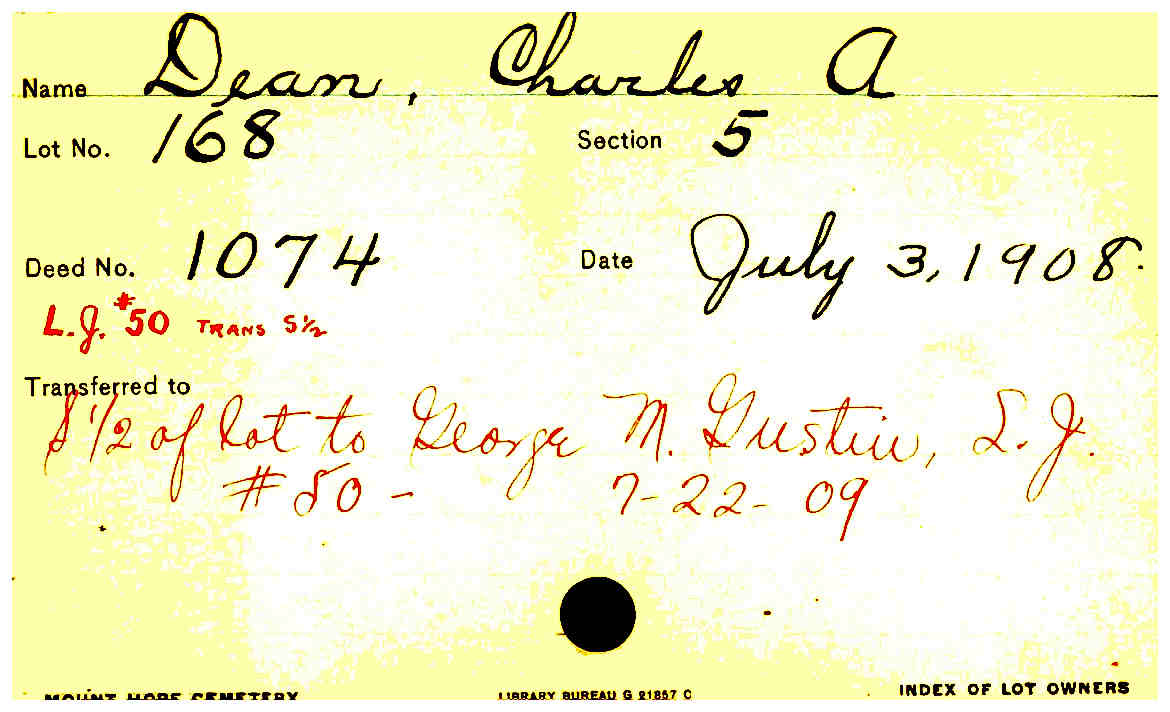 Name Dean, Charles A
Lot No. 168 Section 5
Deed No. 1074 Date July 3, 1908.
L.J. #50 TRANS S 1/2
Transferred to
S 1/2 of lot to George M. Gustin, L.J.
#50 - 7-22-09
MOUNT HOPE CEMETERY LIBRARY BUREAU G 21857 C INDEX OF LOT OWNERS